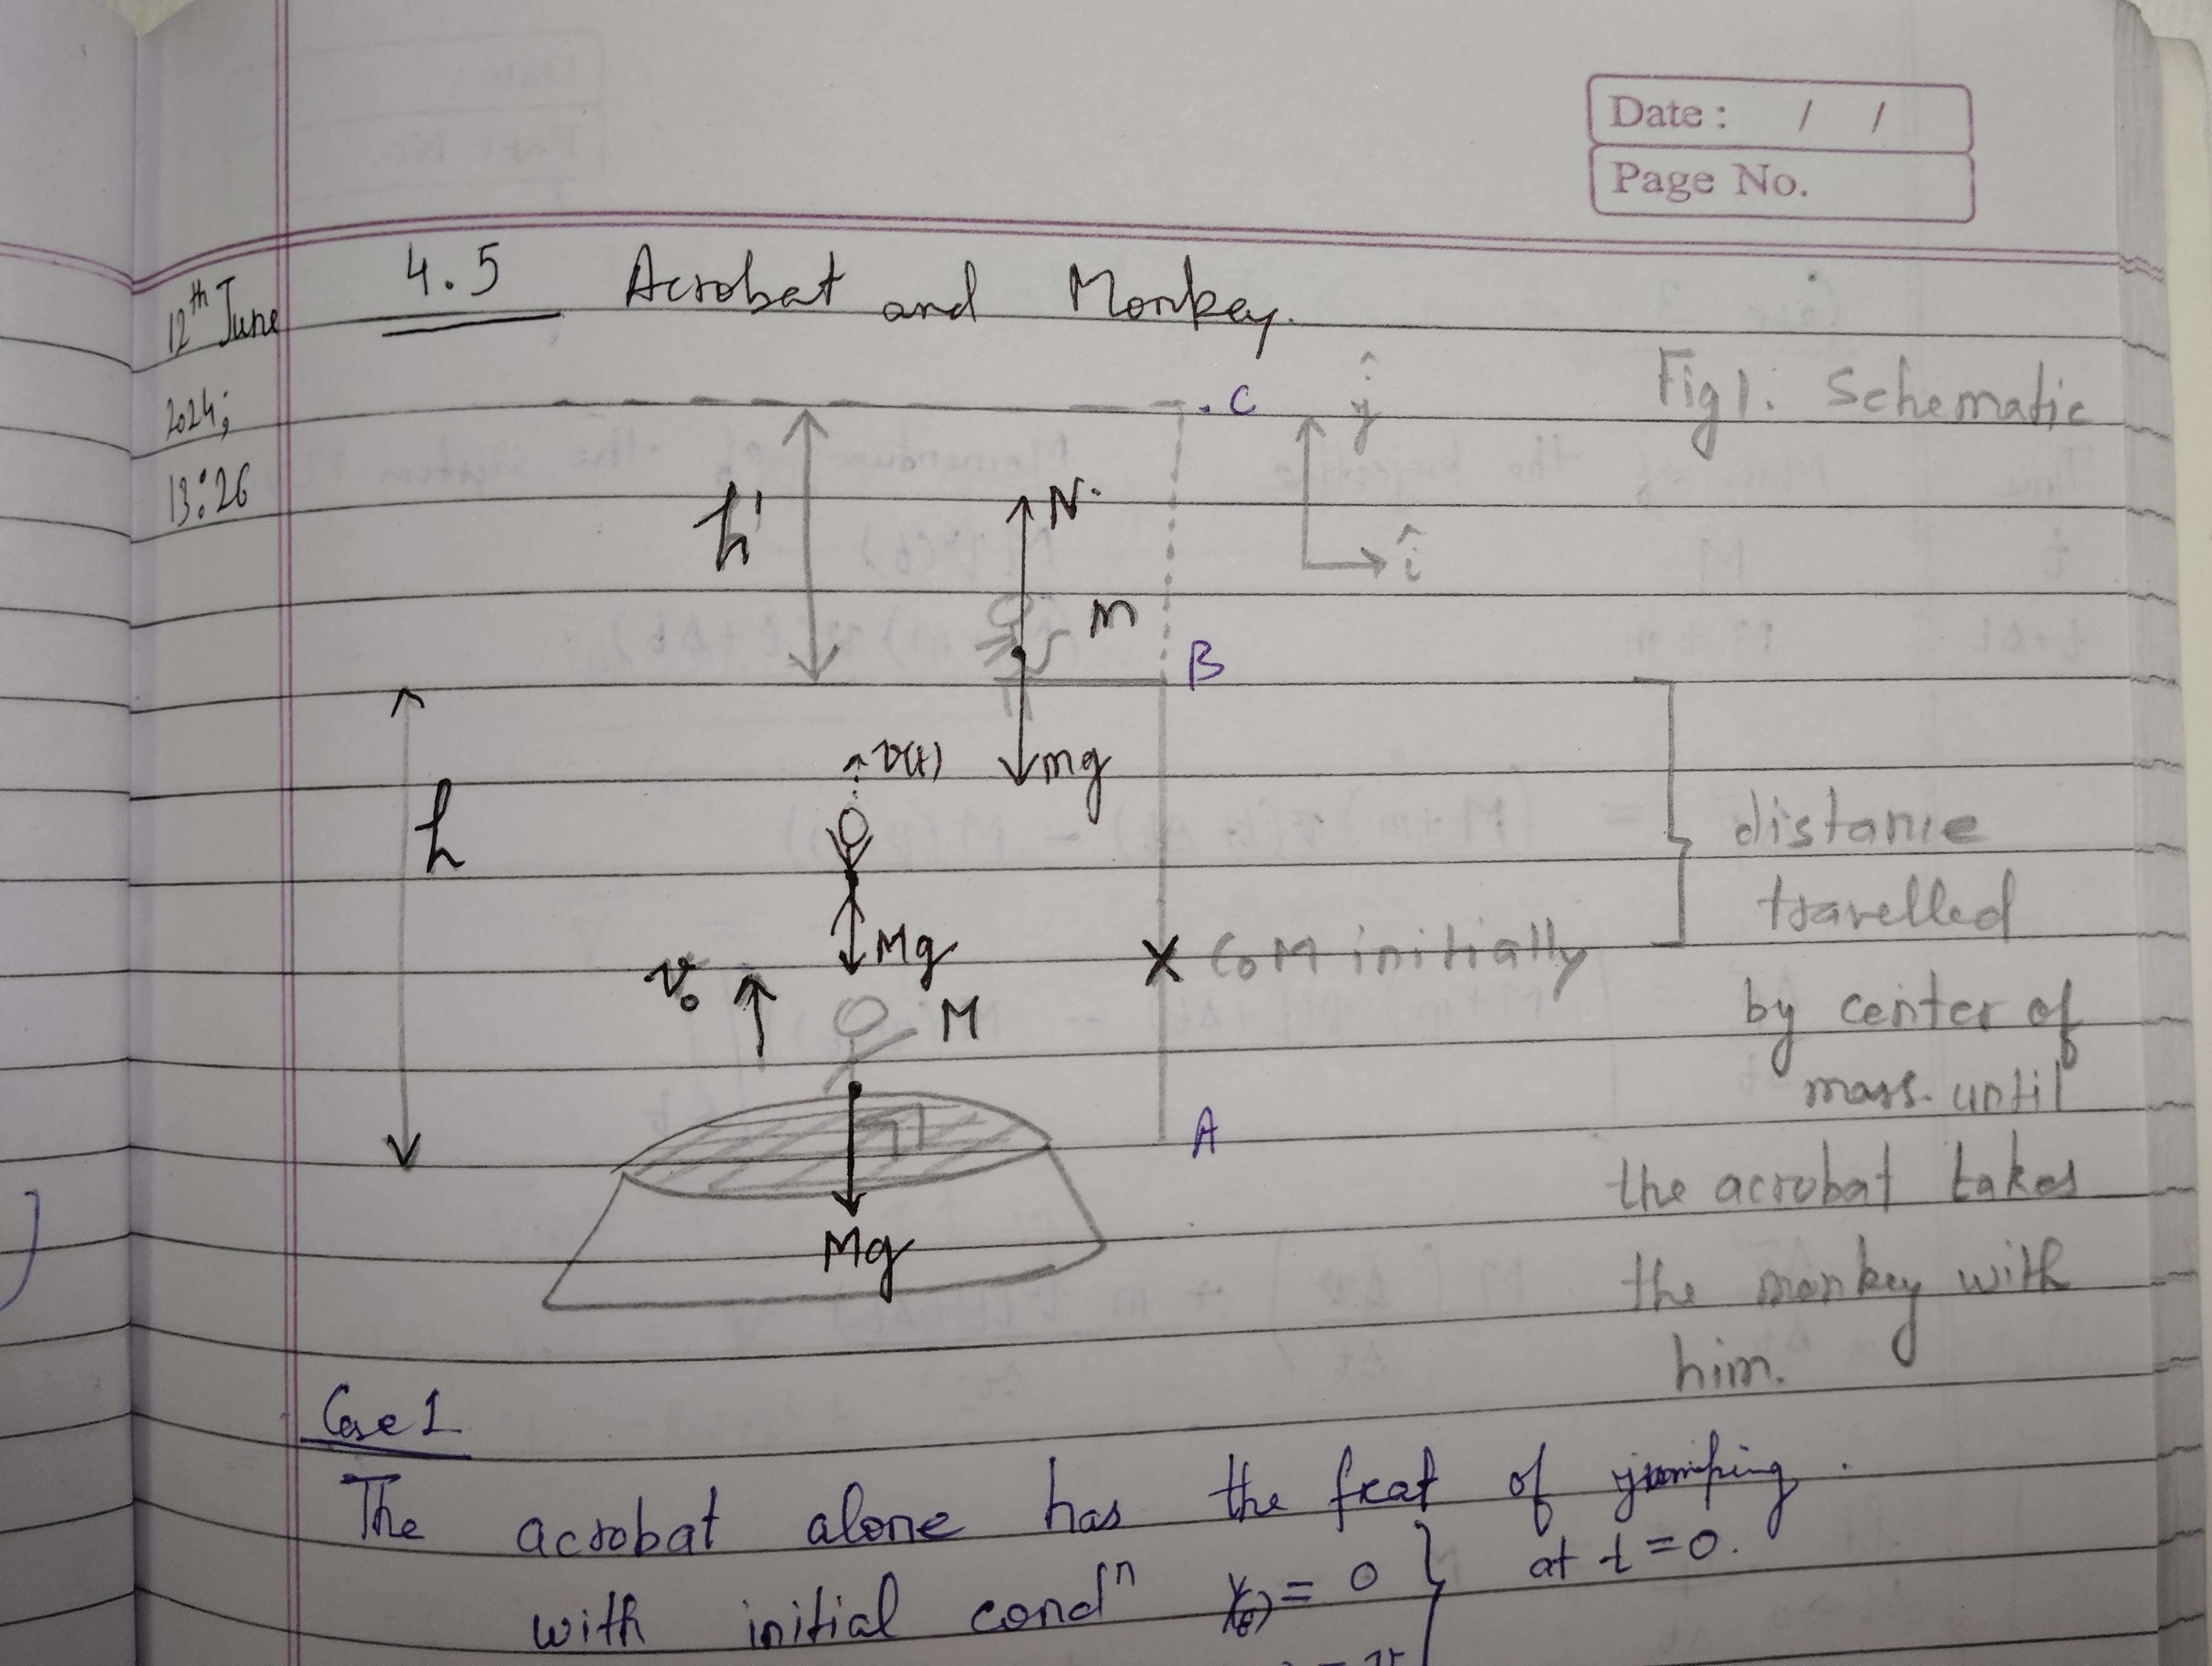 Date : / /
Page No.
4.5 Acrobat and Monkey.
12th June
2024;
13:26
Fig 1. Schematic
C
ĵ
h'
N
î
m
B
v(t)
mg
h
distance
travelled
Mg
CoM initially
v₀
M
by center of
mass until
A
the acrobat takes
Mg
the monkey with
him.
Case 1
The acrobat alone has the feat of jumping
with initial condⁿ = 0 } at t = 0.